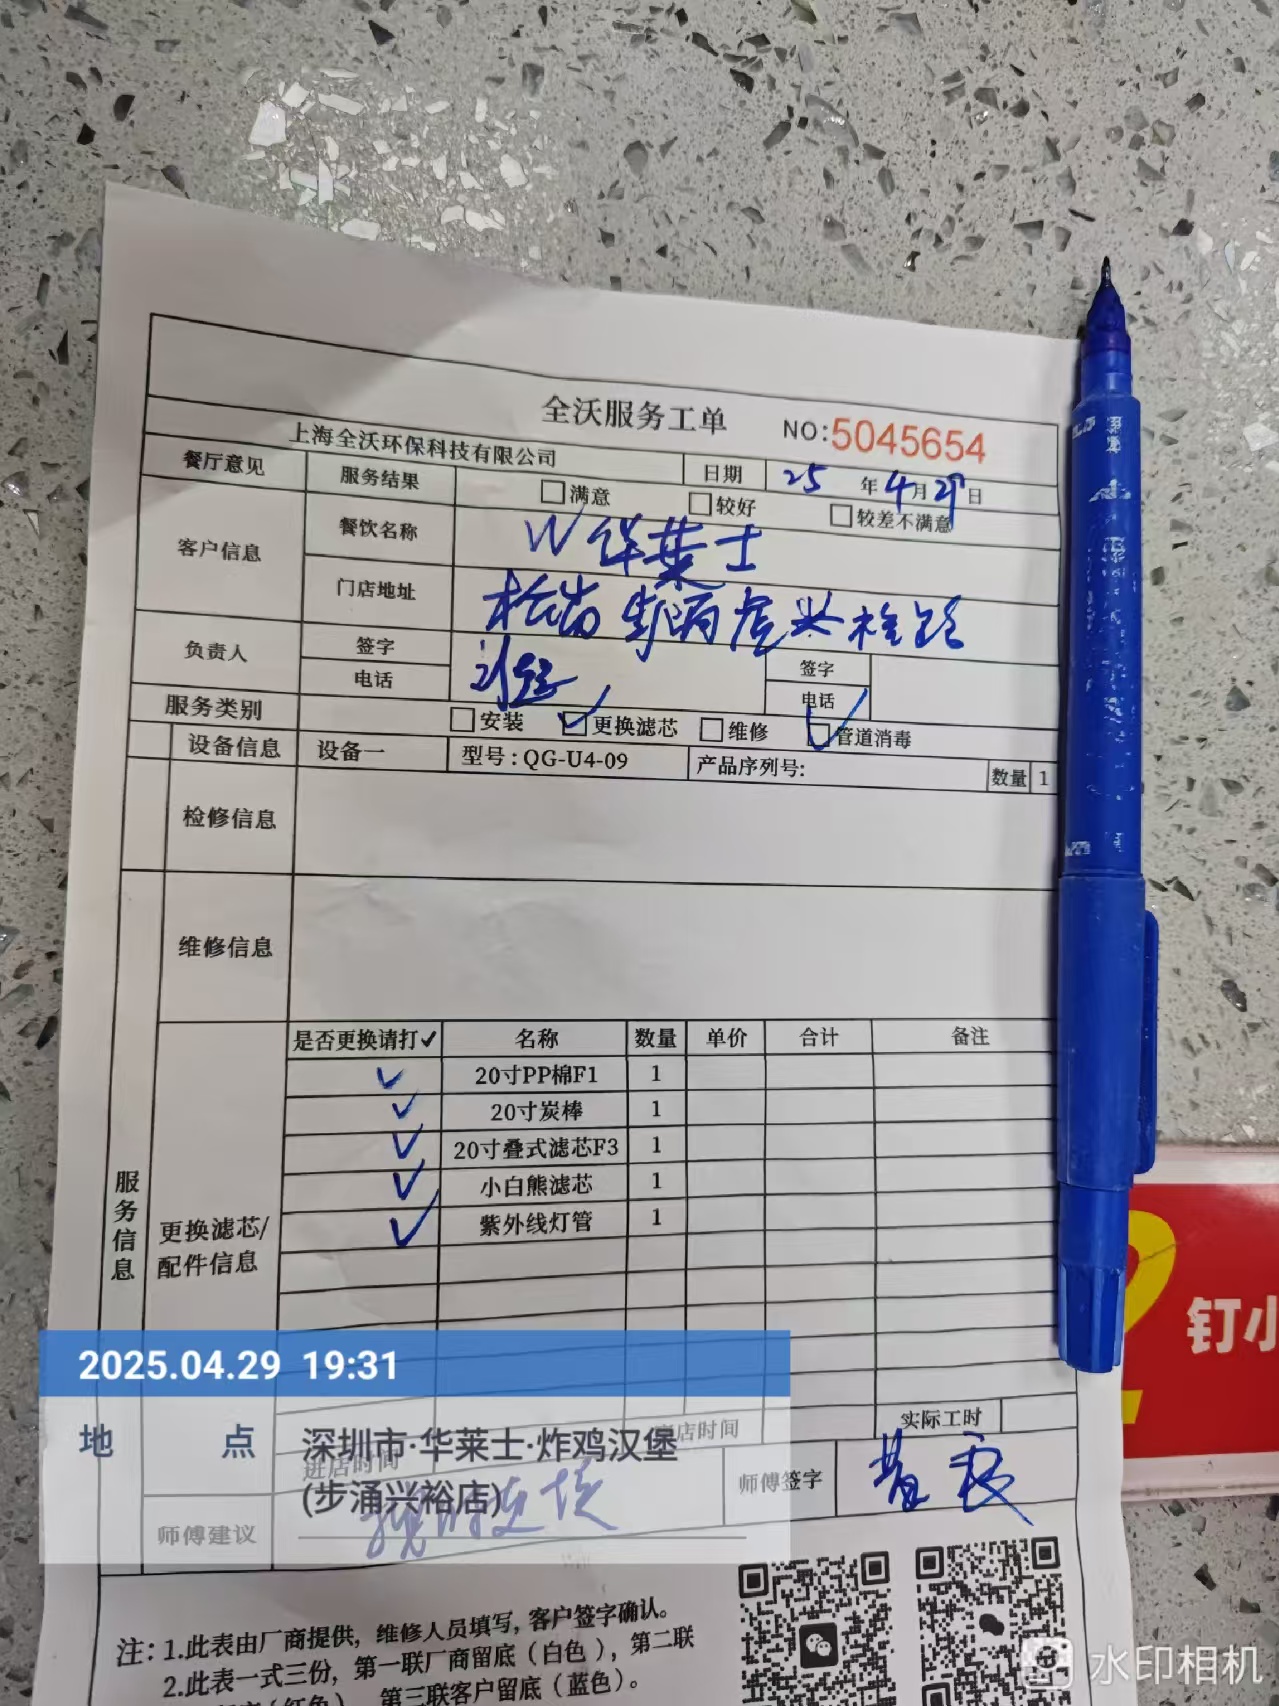 全沃服务工单 NO:5045654
上海全沃环保科技有限公司 日期 25年4月29日
餐厅意见 服务结果 □满意 □较好 □较差不满意
客户信息 餐饮名称 W华莱士
门店地址
负责人 签字 签字
电话 电话
服务类别 □安装 ☑更换滤芯 □维修 ☑管道消毒
设备信息 设备一 型号:QG-U4-09 产品序列号: 数量 1
检修信息
维修信息
服务信息
更换滤芯/
配件信息
是否更换请打✓ 名称 数量 单价 合计 备注
✓ 20寸PP棉F1 1
✓ 20寸炭棒 1
✓ 20寸叠式滤芯F3 1
✓ 小白熊滤芯 1
✓ 紫外线灯管 1
进店时间 离店时间 实际工时
师傅建议 师傅签字
2025.04.29 19:31
地 点 深圳市·华莱士·炸鸡汉堡
(步涌兴裕店)
注:1.此表由厂商提供,维修人员填写,客户签字确认。
2.此表一式三份,第一联厂商留底(白色),第二联
第三联客户留底(蓝色)。
2
钉小
水印相机